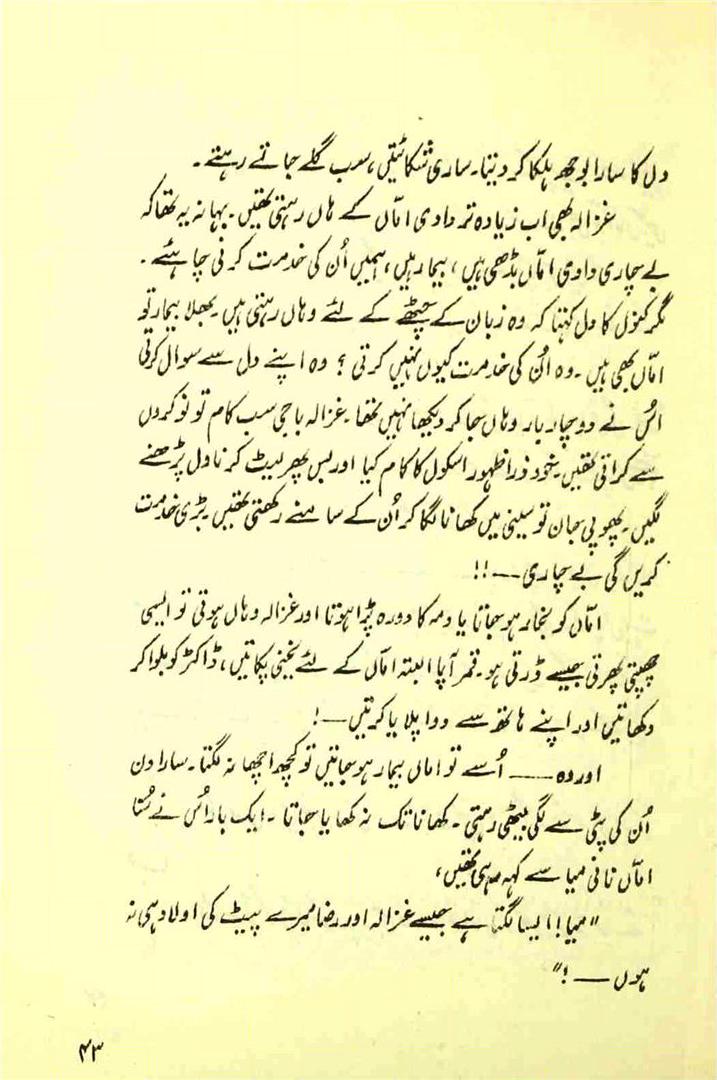 دل کا سارا بوجھ ہلکا کر دیتا۔ ساری شکائتیں، سب گلے جاتے رہتے۔
غزالہ بھی اب زیادہ تر دادی اماں کے ہاں رہتی تھیں۔ بہانہ یہ تھا کہ
بے چاری دادی اماں بڈھی ہیں، بیمار ہیں، ہمیں اُن کی خدمت کرنی چاہئے۔
مگر کنول کا دل کہتا کہ وہ زبان کے چٹخے کے لئے وہاں رہتی ہیں۔ بھلا بیمار تو
اماں بھی ہیں۔ وہ اُن کی خدمت کیوں نہیں کرتی؟ وہ اپنے دل سے سوال کرتی
اُس نے دو چار بار وہاں جا کر دیکھا نہیں تھا۔ غزالہ باجی سب کام تو نوکروں
سے کراتی تھیں۔ خود ذرا ظہور اسکول کا کام کیا اور بس پھر لیٹ کر ناول پڑھنے
لگیں۔ پھوپی جان تو سینی میں کھانا لگا کر اُن کے سامنے رکھتی تھیں۔ بڑی خدمت
کریں گی بے چاری ——!!
اماں کو بخار ہو جاتا یا دمہ کا دورہ پڑا ہوتا اور غزالہ وہاں ہوتی تو ایسی
چھپتی پھرتی جیسے ڈرتی ہو۔ قمر آپا البتہ اماں کے لئے یخنی پکاتیں، ڈاکٹر کو بلوا کر
دکھاتیں اور اپنے ہاتھ سے دوا پلایا کرتیں —!
اور وہ —— اُسے تو اماں بیمار ہو جاتیں تو کچھ اچھا نہ لگتا۔ سارا دن
اُن کی پٹی سے لگی بیٹھی رہتی۔ کھانا تک نہ کھایا جاتا۔ ایک بار اُس نے سُنا
اماں نانی میا سے کہہ رہی تھیں،
”میا! ایسا لگتا ہے جیسے غزالہ اور رضا میرے پیٹ کی اولاد ہی نہ
ہوں ——!“
۴۳